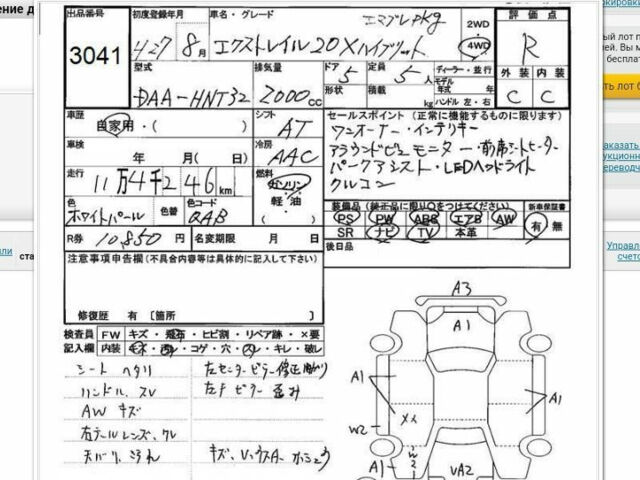 ение д
出品番号
3041
初度登録年月
427 8月
車名・グレード
エマブレpkg
エクストレイル20Xハイブリット
2WD
4WD
評価点
R
外装 内装
C C
型式
DAA-HNT32
排気量
2000cc
ドア 5
形状
定員 5人
積載 kg
ディーラー・並行
モデル年式 年
ハンドル 左・右
車歴
自家用・( )
シフト
AT
セールスポイント (正常に機能するものに限ります)
ワンオーナー・インテリキー
アラウンドビューモニター・前席シートヒーター
パークアシスト・LEDヘッドライト
クルコン
車検
年 月( )
冷房
AAC
走行
11万4千246km
燃料
ガソリン
軽・油
( )
色
ホワイトパール
色替
色コード
QAB
装備品 (純正品に限り○をつけてください)
新車保証書
PS PW ABS エアB AW
SR ナビ TV 本革
有・無
R券 10,850円
名変期限 月 日
後日品
注意事項申告欄(不具合内容等は具体的に記入して下さい)
修復歴 有〔箇所 〕
検査員記入欄
FW キズ・飛石・ヒビ割・リペア跡・×要
内装 キズ・汚れ・コゲ・穴・スレ・キレ・破レ
シート ヘタリ
左センターピラー修正
ハンドル、スレ
左Fピラー 歪み
AW キズ
右テールレンズ、ワレ
天バリ、汚れ
キズ、
A3
A1
A1
A1
W2
A1
VA2
ый лот п
ней. Вы м
бесплат
ть лот б
аказать
укционн
ереводч
или
ста
Управл
счето